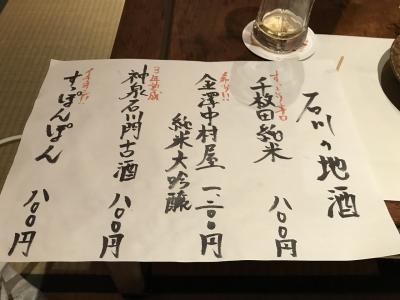 石川の地酒
すっきり辛口
千枚田純米 八〇〇円
希少!!
金澤中村屋 一二〇〇円
純米大吟醸
3年熟成
神泉石川門古酒 八〇〇円
すっぽんぽん 八〇〇円